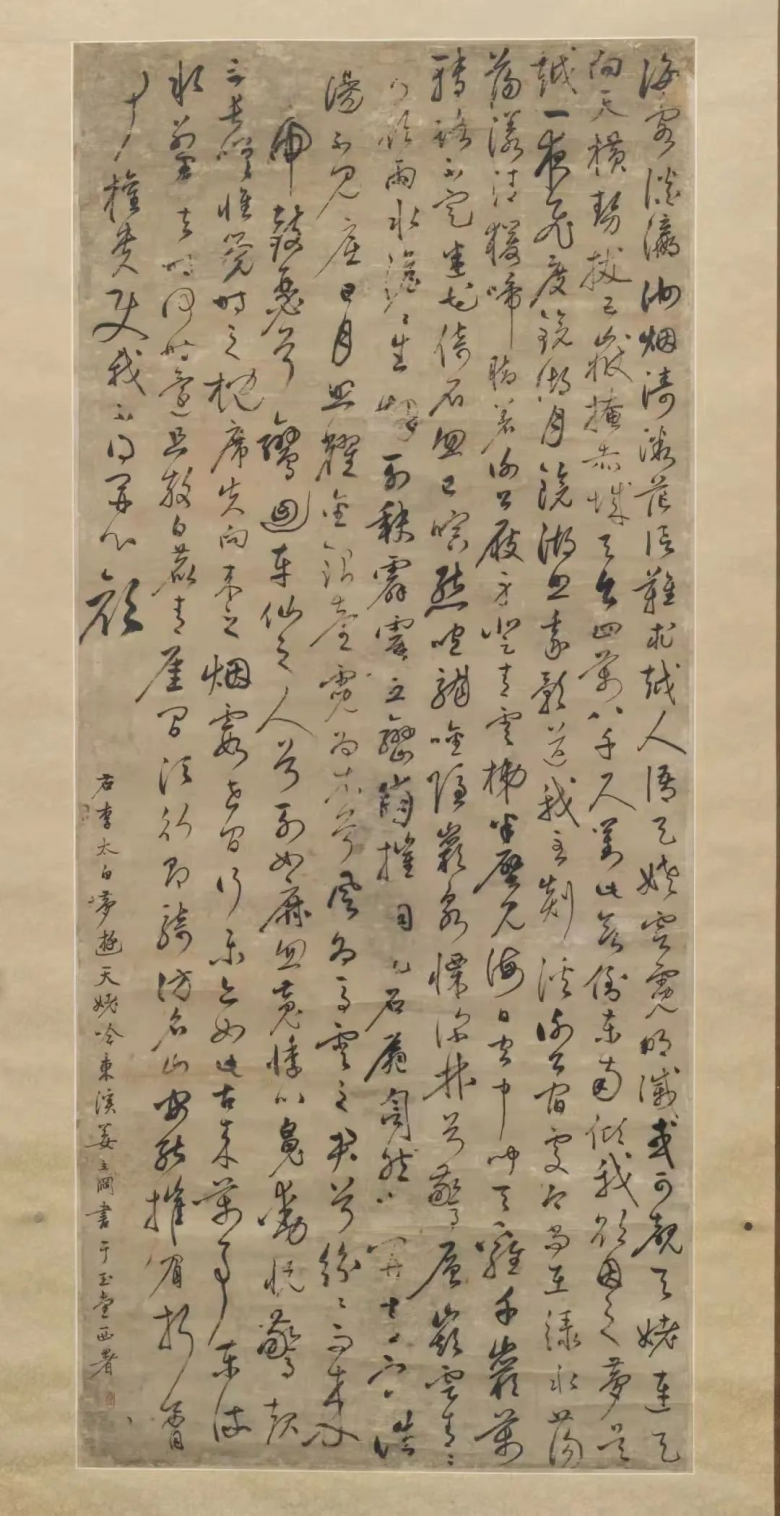 海客談瀛洲烟濤微茫信難求越人語天姥雲霓明滅或可覩天姥連天
向天橫勢拔五嶽掩赤城天台四萬八千丈對此欲倒東南傾我欲因之夢吳
越一夜飛度鏡湖月鏡湖照我影送我至剡溪謝公宿處今尚在綠水蕩
蕩漾清猨啼脚著謝公屐身登青雲梯半壁見海日空中聞天雞千巖萬
轉路不定迷花倚石忽已暝熊咆龍吟殷巖泉慄深林兮驚層巔雲青〻
兮欲雨水澹〻生烟列缺霹靂丘巒崩摧洞天石扇訇然中開青冥浩
蕩不見底日月照耀金銀臺霓為衣兮風為馬雲之君兮紛〻而來下
虎鼓瑟兮鸞迴車仙之人兮列如麻忽魂悸以魄動怳驚起
而長嗟惟覺時之枕席失向來之烟霞世間行樂亦如此古來萬事東流
水別君去時何時還且放白鹿青崖間須行即騎訪名山安能摧眉折腰
事權貴使我不得開心顏
右李太白夢遊天姥吟東溪姜立綱書于玉堂西署